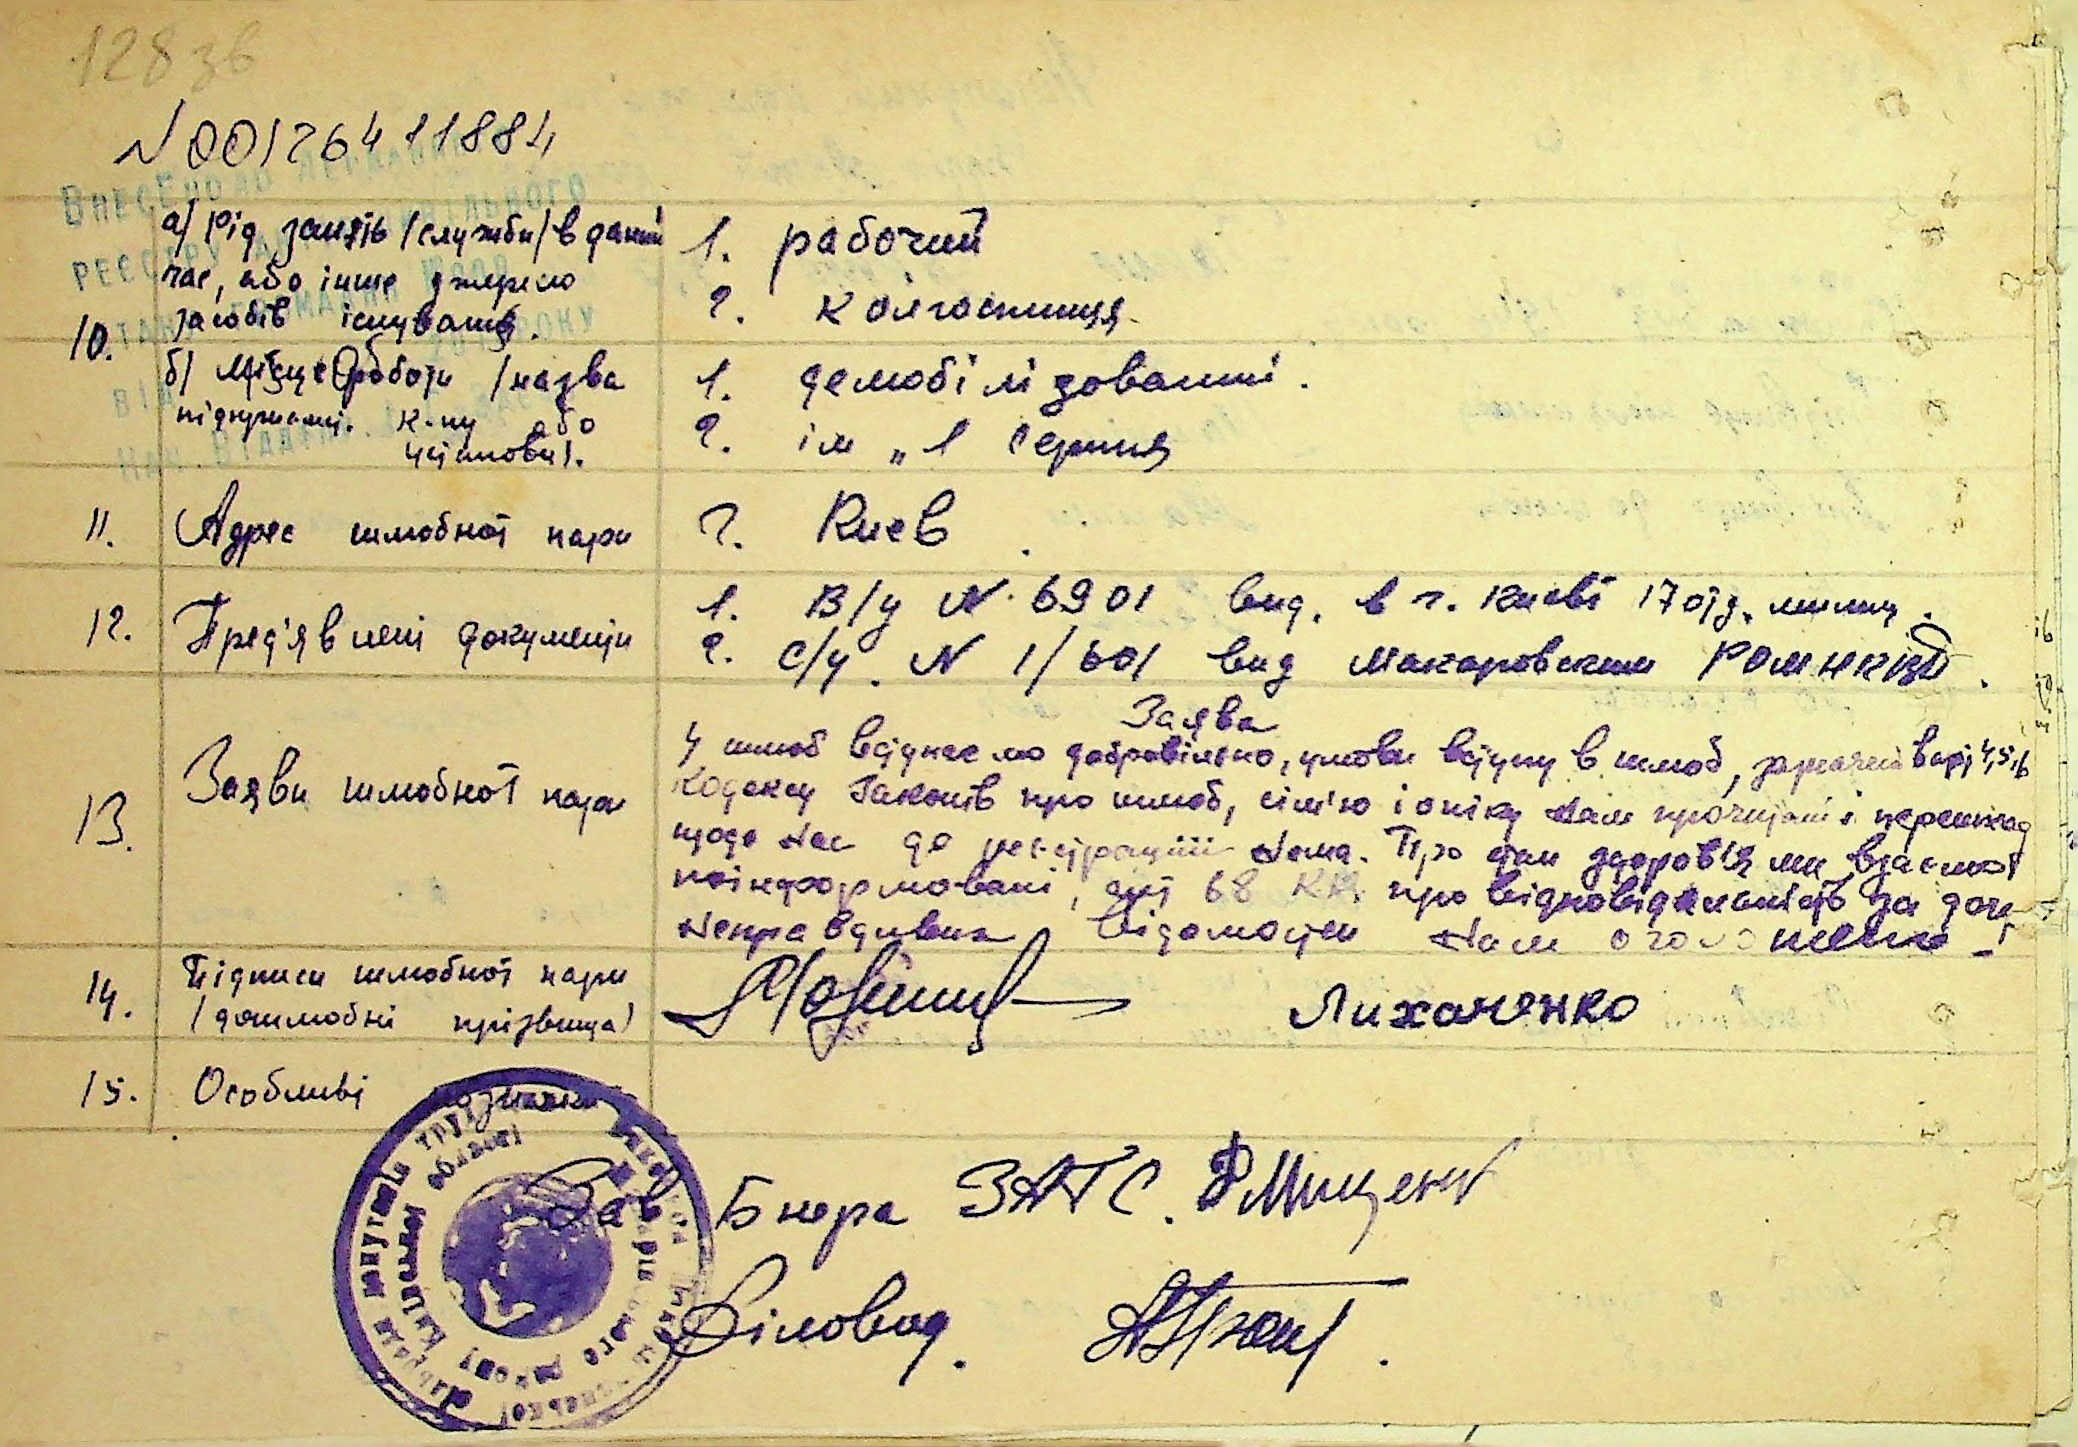 128 зв
N 00126411884
ВНЕСЕНО ДО ДЕРЖАВНОГО
РЕЄСТРУ
а/ Рід занять /служби/ в даний
час, або інше джерело
засобів існування.
10.
1. рабочий
2. колгоспниця.
б/ Місце роботи /назва
підприємст. к-пу або
установи/.
1. демобілізований.
2. ім „1 Серпня
11. Адрес шлюбної пари
г. Киев.
12. Пред'явлені документи
1. В/у N 6901 вид. в г. Києві 17 отд. милиц.
2. С/у. N 1/601 вид Макаровским РОМ НКВД.
13. Заяви шлюбної пари
Заява
У шлюб вступаємо добровільно, умови вступу в шлюб, зазначені в арт 4,5,6
Кодексу Законів про шлюб, сім'ю і опіку нам прочитані і перешкод
щодо нас до реєстрації нема. Про стан здоров'я ми взаємно
поінформовані, ст 68 КК. про відповідальність за дачу
неправдивих відомостей нам оголошено.
14. Підписи шлюбної пари
/дошлюбні прізвища/
Лихоненко
15. Особливі познаки
Зав Бюра ЗАГС. Мищенк
Діловод.
депутатів труд
Київської області